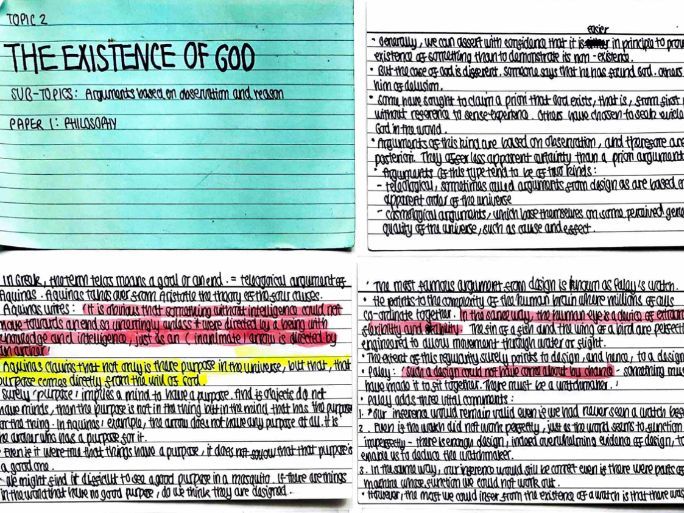 TOPIC 2
THE EXISTENCE OF GOD
SUB-TOPICS: Arguments based on observation and reason
PAPER 1: PHILOSOPHY
easier
• Generally, we can assert with confidence that it is in principle to prov
existence of something than to demonstrate its non-existence.
• But the case of God is different. Someone says that he has found God. Others
him of delusion.
• Some have sought to claim a priori that God exists, that is, from first
without reference to sense-experience. Others have chosen to seek evide
God in the world.
• Arguments of this kind are based on observation, and therefore are
posteriori. They offer less apparent certainty than a priori argument
• Arguments of this type tend to be of two kinds:
- teleological, sometimes called arguments from design as are based o
apparent order of the universe
- cosmological arguments, which base themselves on some perceived gene
quality of the universe, such as cause and effect.
In Greek, the term telos means a goal or an end. = teleological argument of
Aquinas. Aquinas takes over from Aristotle the theory of the four causes.
Aquinas writes: 'It is obvious that something without intelligence could not
move towards an end so unerringly unless it were directed by a being with
knowledge and intelligence, just as an inanimate arrow is directed by
an archer.
Aquinas claims that not only is there purpose in the universe, but that, that
purpose comes directly from the will of God.
Surely 'purpose' implies a mind to have a purpose. And if objects do not
have minds, then the purpose is not in the thing but in the mind that has the purpose
for the thing. In Aquinas' example, the arrow does not have any purpose at all. It is
the archer who has a purpose for it.
Even if it were true that things have a purpose, it does not follow that that purpose is
a good one.
We might find it difficult to see a good purpose in a mosquito. If there are things
in the world that have no good purpose, do we think they are designed.
• The most famous argument from design is known as Paley's watch.
• He points to the complexity of the human brain where millions of cells
co-ordinate together. In the same way, the human eye is a device of extraord
flexibility and. The fin of a fish and the wing of a bird are perfect
engineered to allow movement through water or flight.
• The extent of this regularity surely points to design, and hence, to a desi
• Paley: 'Such a design could not have come about by chance - something must
have made it to fit together. There must be a watchmaker.'
• Paley adds three vital comments:
1. "Our inference would remain valid even if we had never seen a watch befo
2. Even if the watch did not work perfectly, just as the world seems to function
imperfectly - there is enough design, indeed overwhelming evidence of design, to
enable us to deduce the watchmaker.
3. In the same way, our inference would still be correct even if there were parts of
machine whose function we could not work out.
• However, the most we could infer from the existence of a watch is that there was